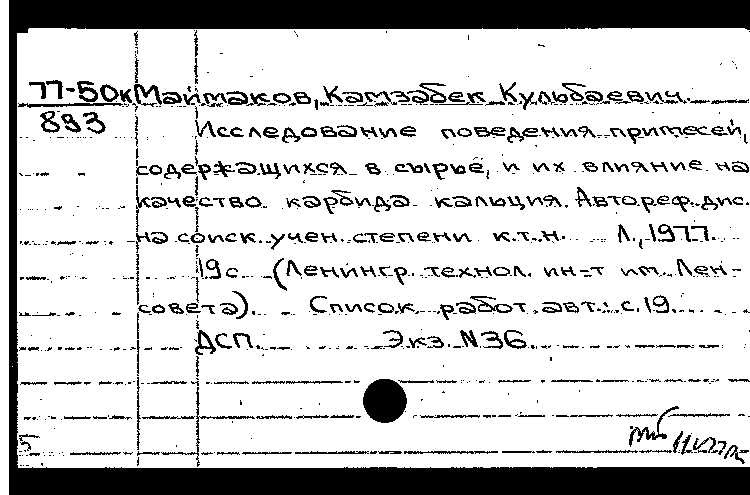 77-50к Маймаков, Камзабек Кульбаевич.
893 Исследование поведения примесей,
содержащихся в сырье, и их влияние на
качество карбида кальция. Автореф. дис.
на соиск. учен. степени к.т.н. Л., 1977.
19с (Ленингр. технол. ин-т им. Лен-
совета). Список работ авт.: с. 19.
ДСП. Экз. N36.
5